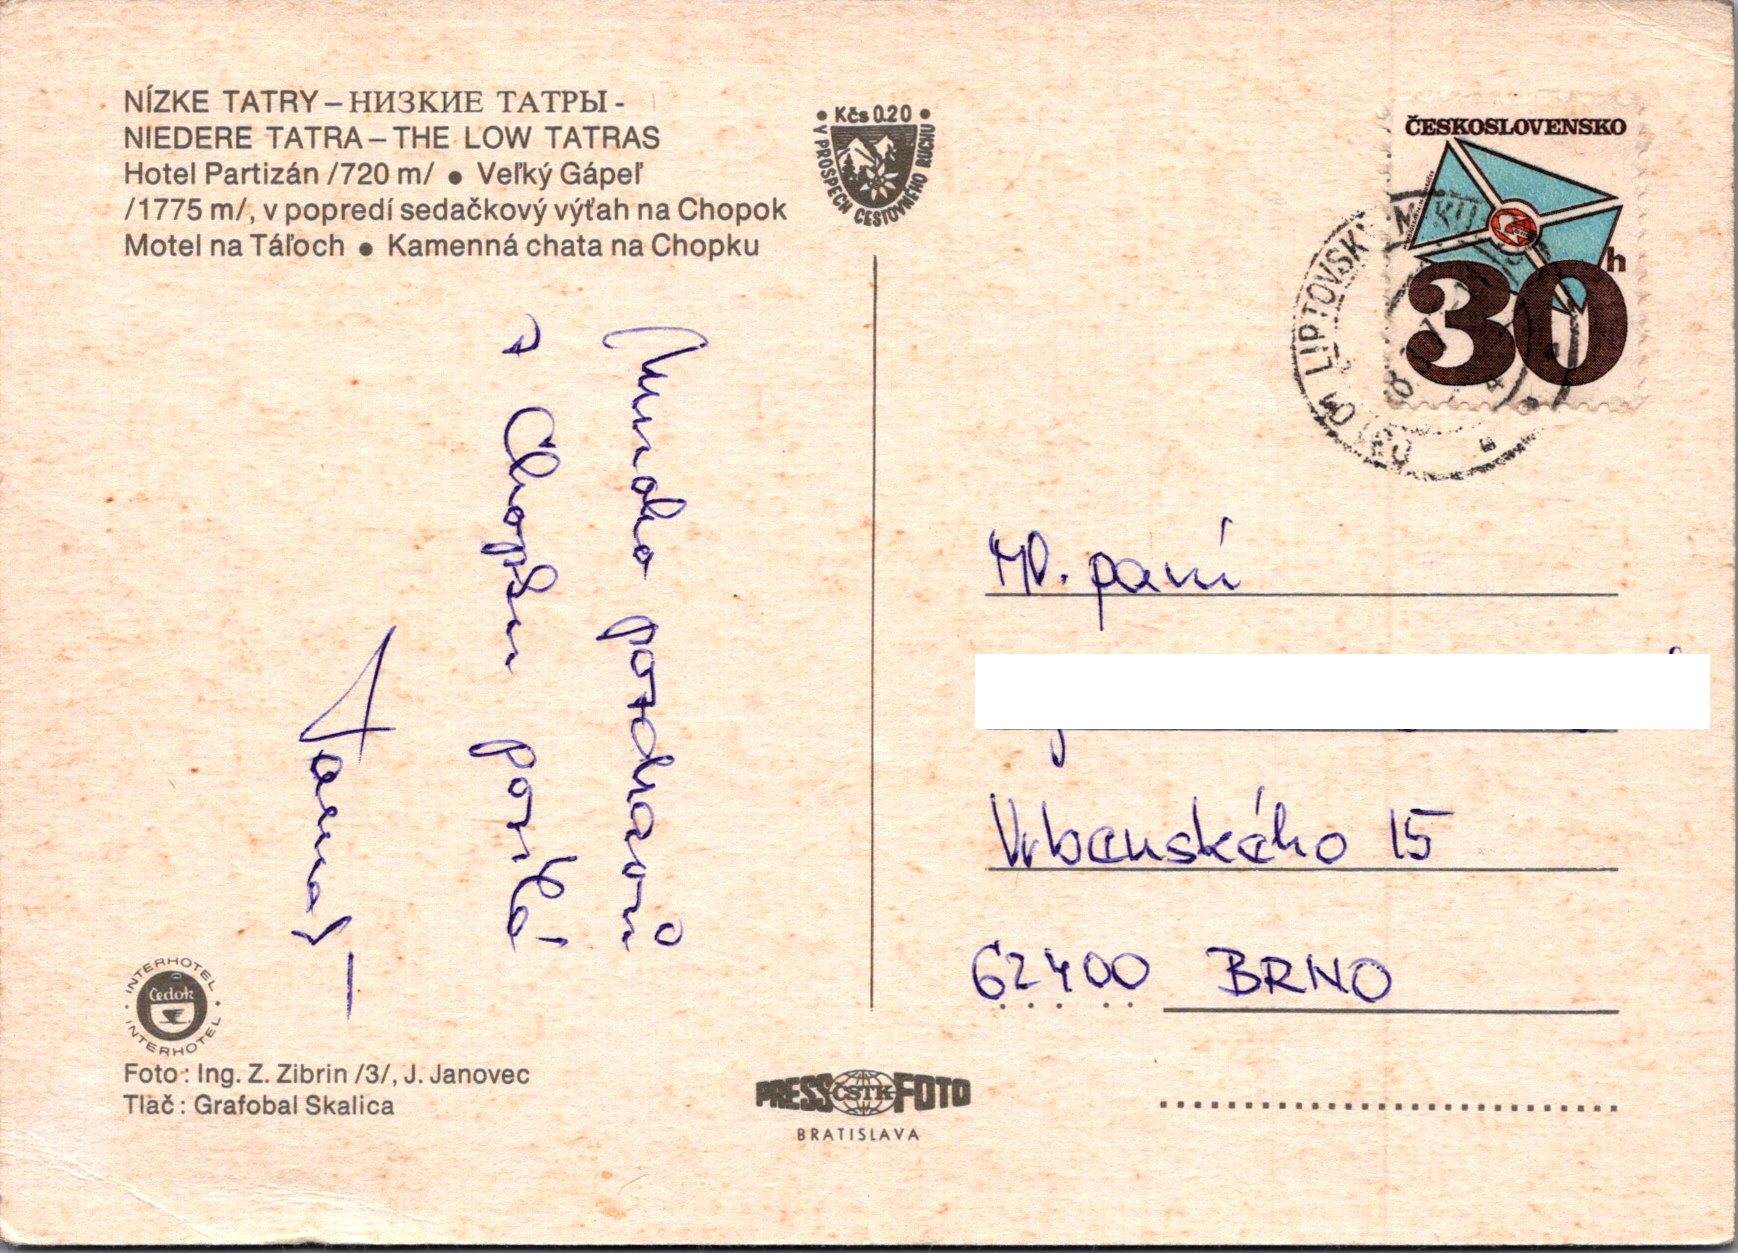 NÍZKE TATRY – НИЗКИЕ ТАТРЫ -
NIEDERE TATRA – THE LOW TATRAS
Hotel Partizán /720 m/ • Veľký Gápeľ
/1775 m/, v popredí sedačkový výťah na Chopok
Motel na Táľoch • Kamenná chata na Chopku
• Kčs 0.20 •
V PROSPECH CESTOVNÉHO RUCHU
ČESKOSLOVENSKO
30 h
031 01 LIPTOVSKÝ MIKULÁŠ
Mnoho pozdravů
z Chopku posílá
Ml. paní
Vrbenského 15
62400 BRNO
INTERHOTEL
Čedok
INTERHOTEL
Foto: Ing. Z. Zibrin /3/, J. Janovec
Tlač: Grafobal Skalica
PRESS ČSTK FOTO
BRATISLAVA